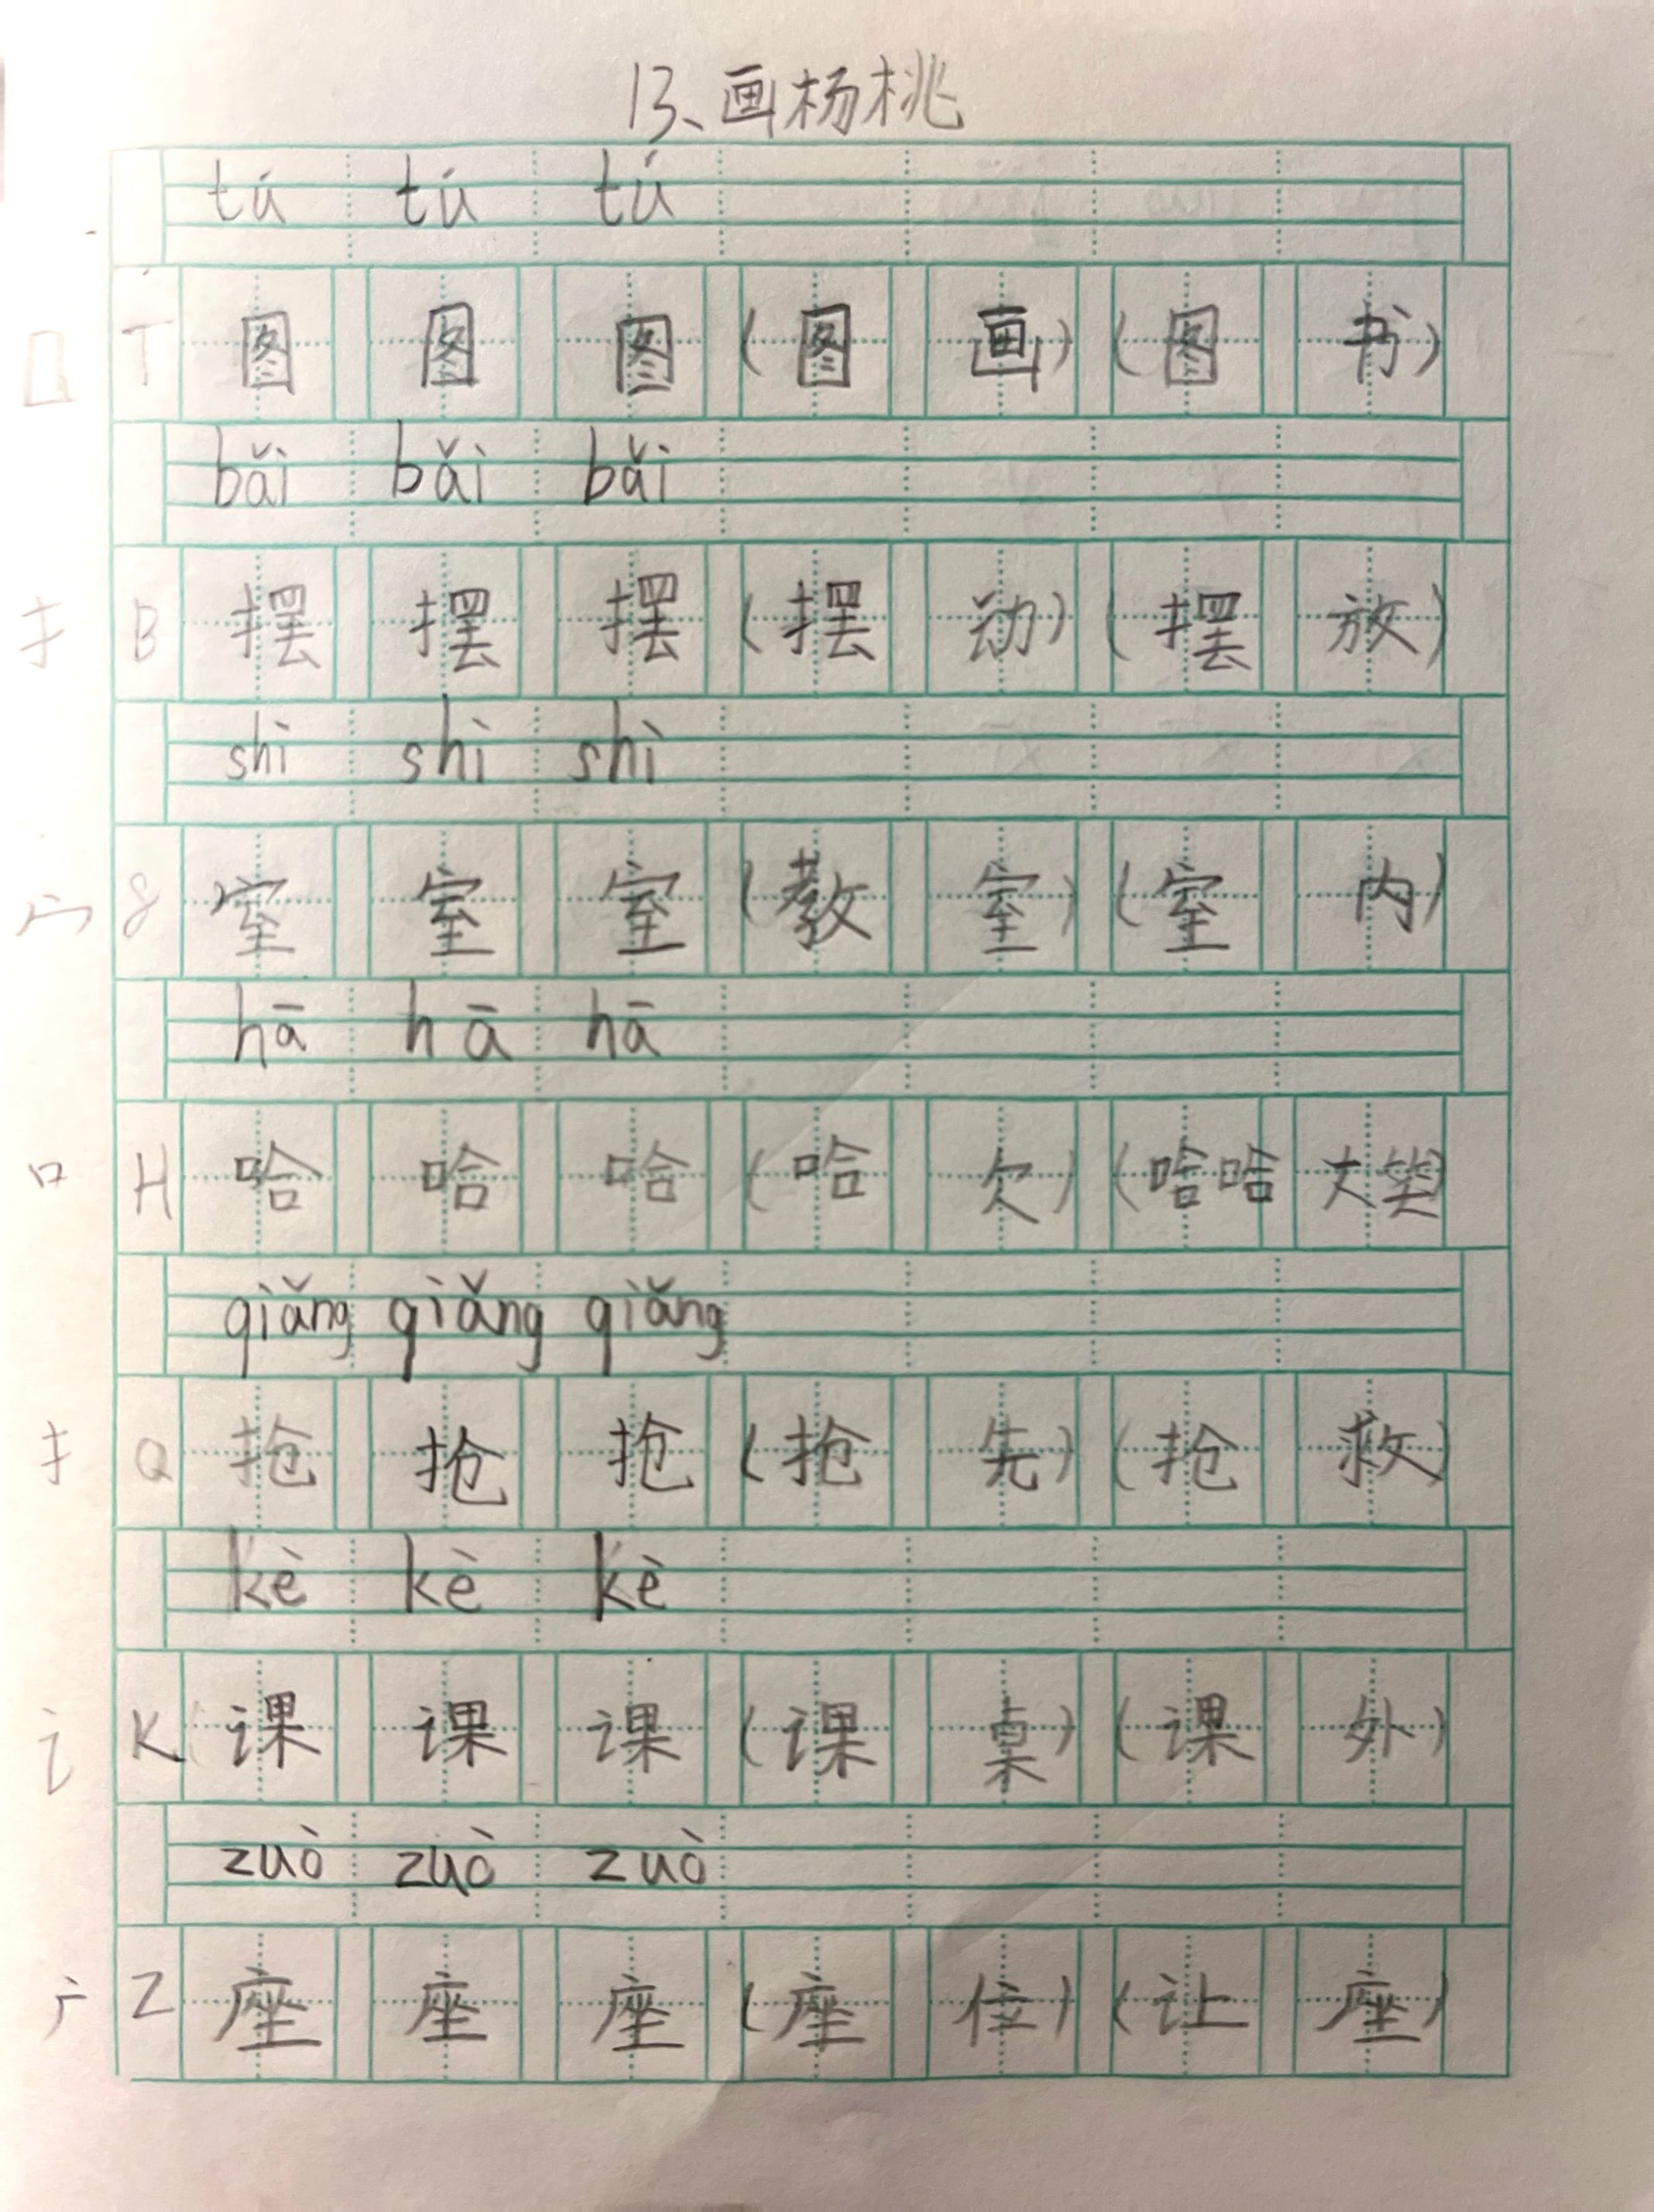 13、画杨桃
tú tú tú
囗 T 图 图 图 (图 画) (图 书)
bǎi bǎi bǎi
扌 B 摆 摆 摆 (摆 动) (摆 放)
shì shì shì
宀 S 室 室 室 (教 室) (室 内)
hā hā hā
口 H 哈 哈 哈 (哈 欠) (哈哈 大笑)
qiǎng qiǎng qiǎng
扌 Q 抢 抢 抢 (抢 先) (抢 救)
kè kè kè
讠 K 课 课 课 (课 桌) (课 外)
zuò zuò zuò
广 Z 座 座 座 (座 位) (让 座)